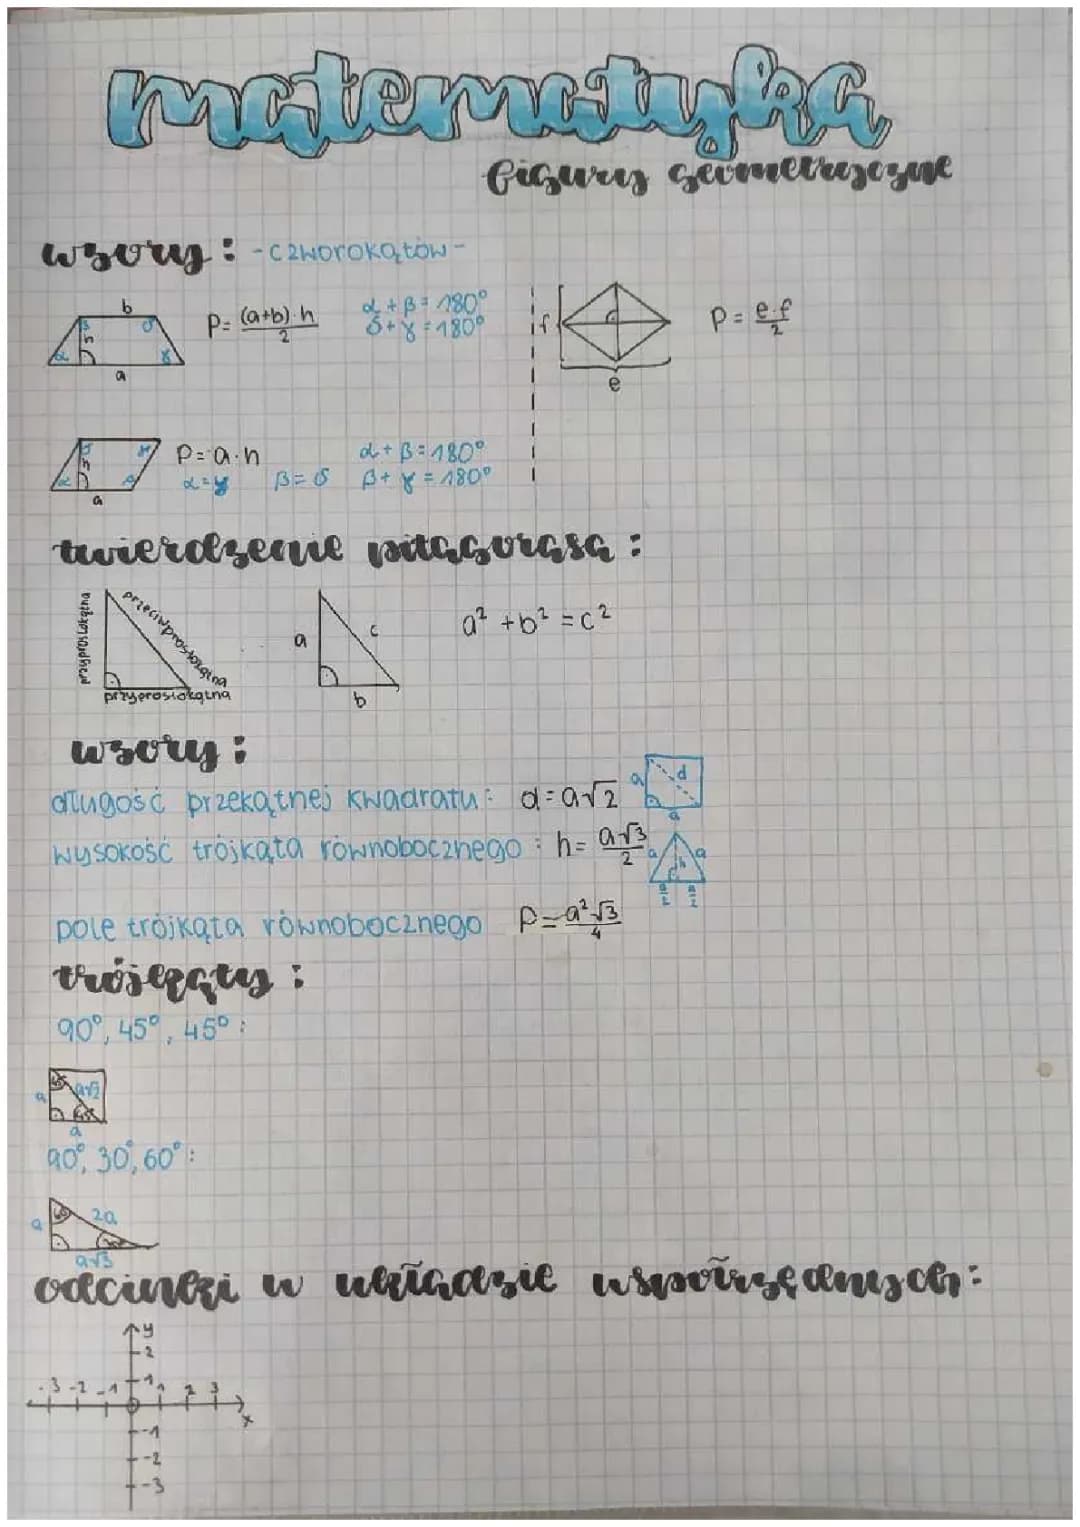 matematyka
figury geometryczne
wzory: -czworokątów-
b
P= (a+b)·h / 2
α + β = 180°
δ + γ = 180°
h
α
γ
a
f
e
P = e·f / 2
P= a·h
α + β = 180°
α=γ β=δ β+ γ = 180°
h
a
twierdzenie pitagorasa:
przyprostokątna
przeciwprostokątna
przyprostokątna
a
c
b
a² + b² = c²
wzory:
długość przekątnej kwadratu: d=a√2
a
d
a
wysokość trójkąta równobocznego: h= a√3 / 2
a
h
a
a/2 a/2
pole trójkąta równobocznego P= a²√3 / 4
trójkąty:
90°, 45°, 45°:
a
a√2
a
90°, 30°, 60°:
a
60
2a
a√3
odcinki w układzie współrzędnych:
y
2
1
-3 -2 -1 1 2 3
x
-1
-2
-3